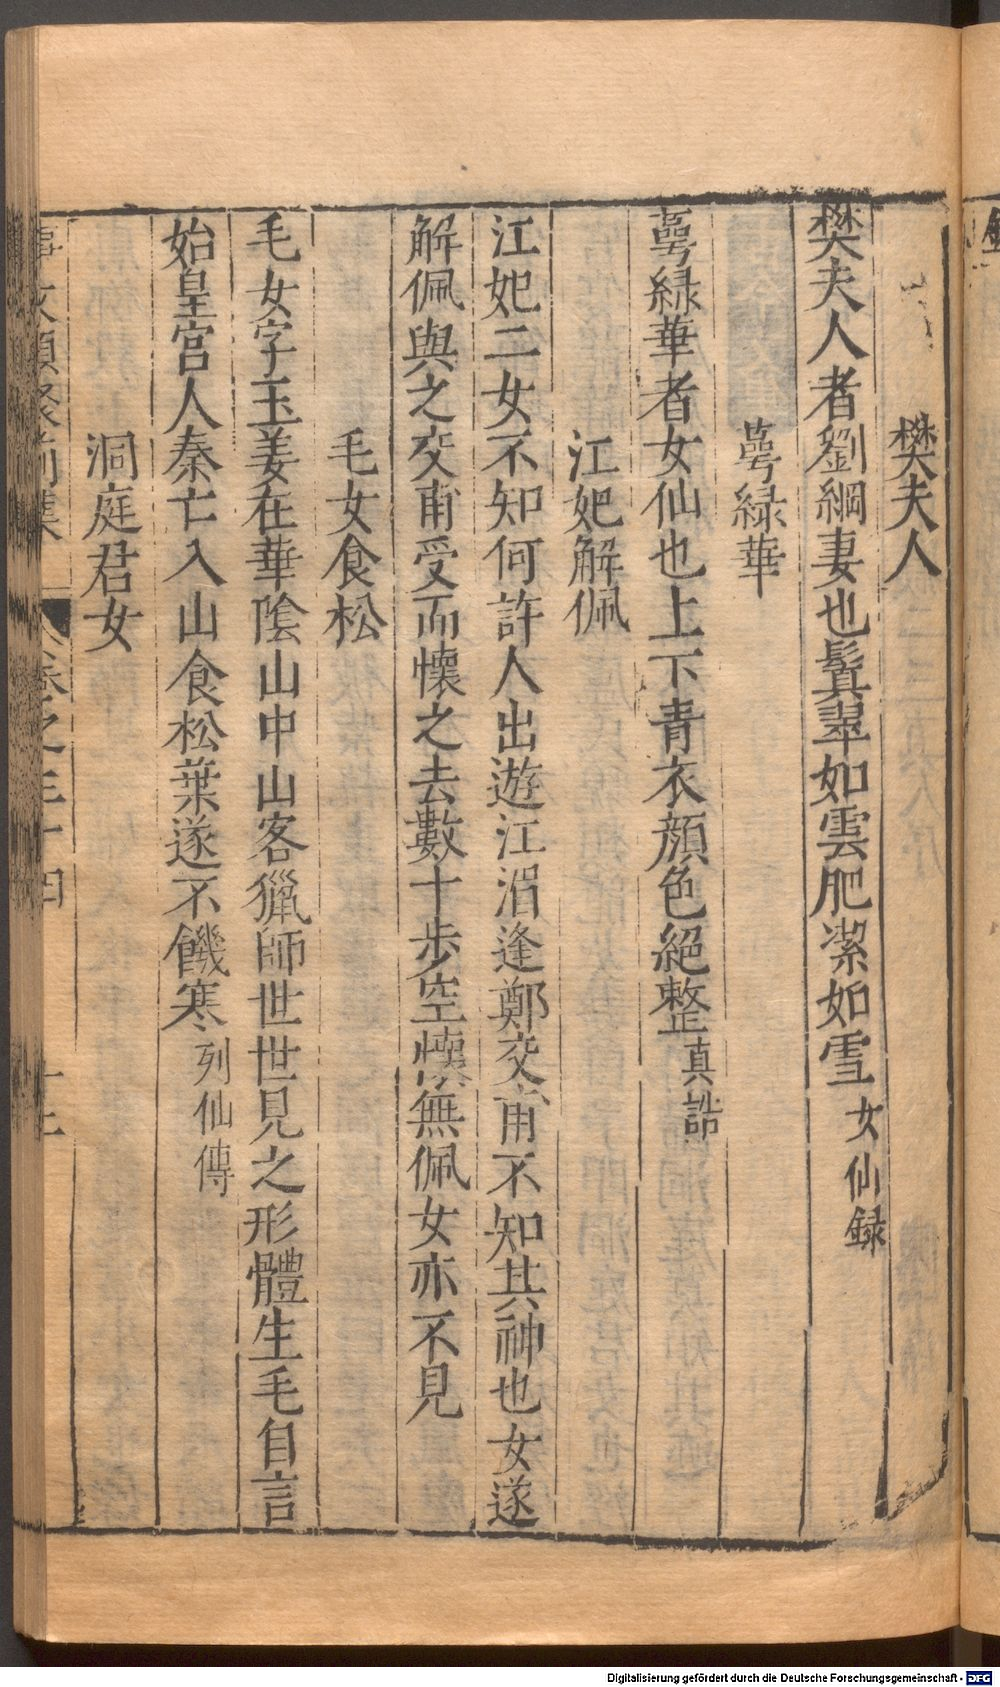 樊夫人
樊夫人者劉綱妻也鬒翠如雲肥潔如雪女仙録
萼緑華
萼緑華者女仙也上下青衣顔色絕整真誥
江妃解佩
江妃二女不知何許人出遊江湄逢鄭交甫不知其神也女遂
解佩與之交甫受而懷之去數十步空懷無佩女亦不見
毛女食松
毛女字玉姜在華陰山中山客獵師世世見之形體生毛自言
始皇宮人秦亡入山食松葉遂不饑寒列仙傳
洞庭君女
事文類聚前集 卷之三十四
Digitalisierung gefördert durch die Deutsche Forschungsgemeinschaft - DFG